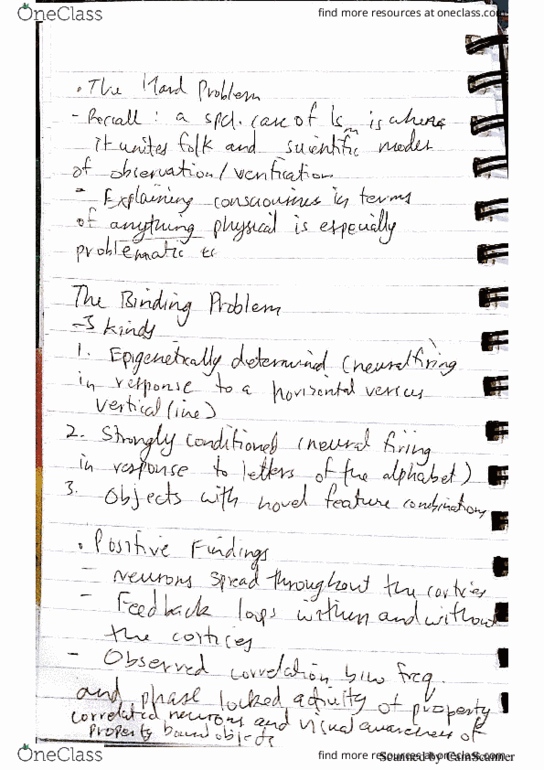 OneClass
find more resources at oneclass.com
• The Hard Problem
- Recall : a spcl. case of Is is where
it unites folk and scientific modes
of observation/verification
- Explaining consciousness in terms
of anything physical is especially
problematic
The Binding Problem
→3 kinds
1. Epigenetically determined (neural firing
in response to a horizontal versus
vertical line)
2. Strongly conditioned (neural firing
in response to letters of the alphabet)
3. Objects with novel feature combinations
• Positive Findings
- neurons spread throughout the cortices
- Feedback loops within and without
the cortices
- Observed correlation btw freq.
and phase locked activity of property
correlated neurons and visual awareness of
property bound objects
OneClass
find more resources at oneclass.com
Scanned by CamScanner